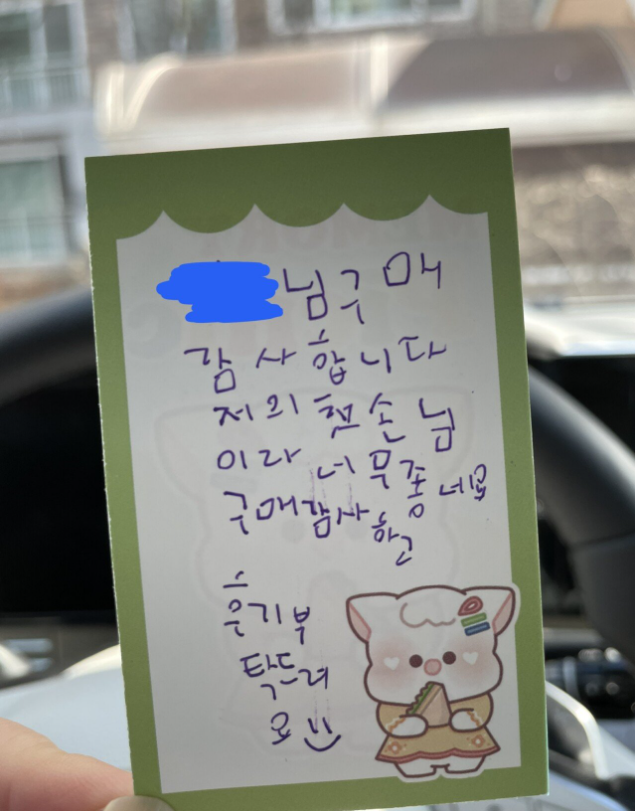 님구매
감사합니다
저의 첫손님
이라 너무좋네요
구매감사하고
후기부
탁드려
요 :)